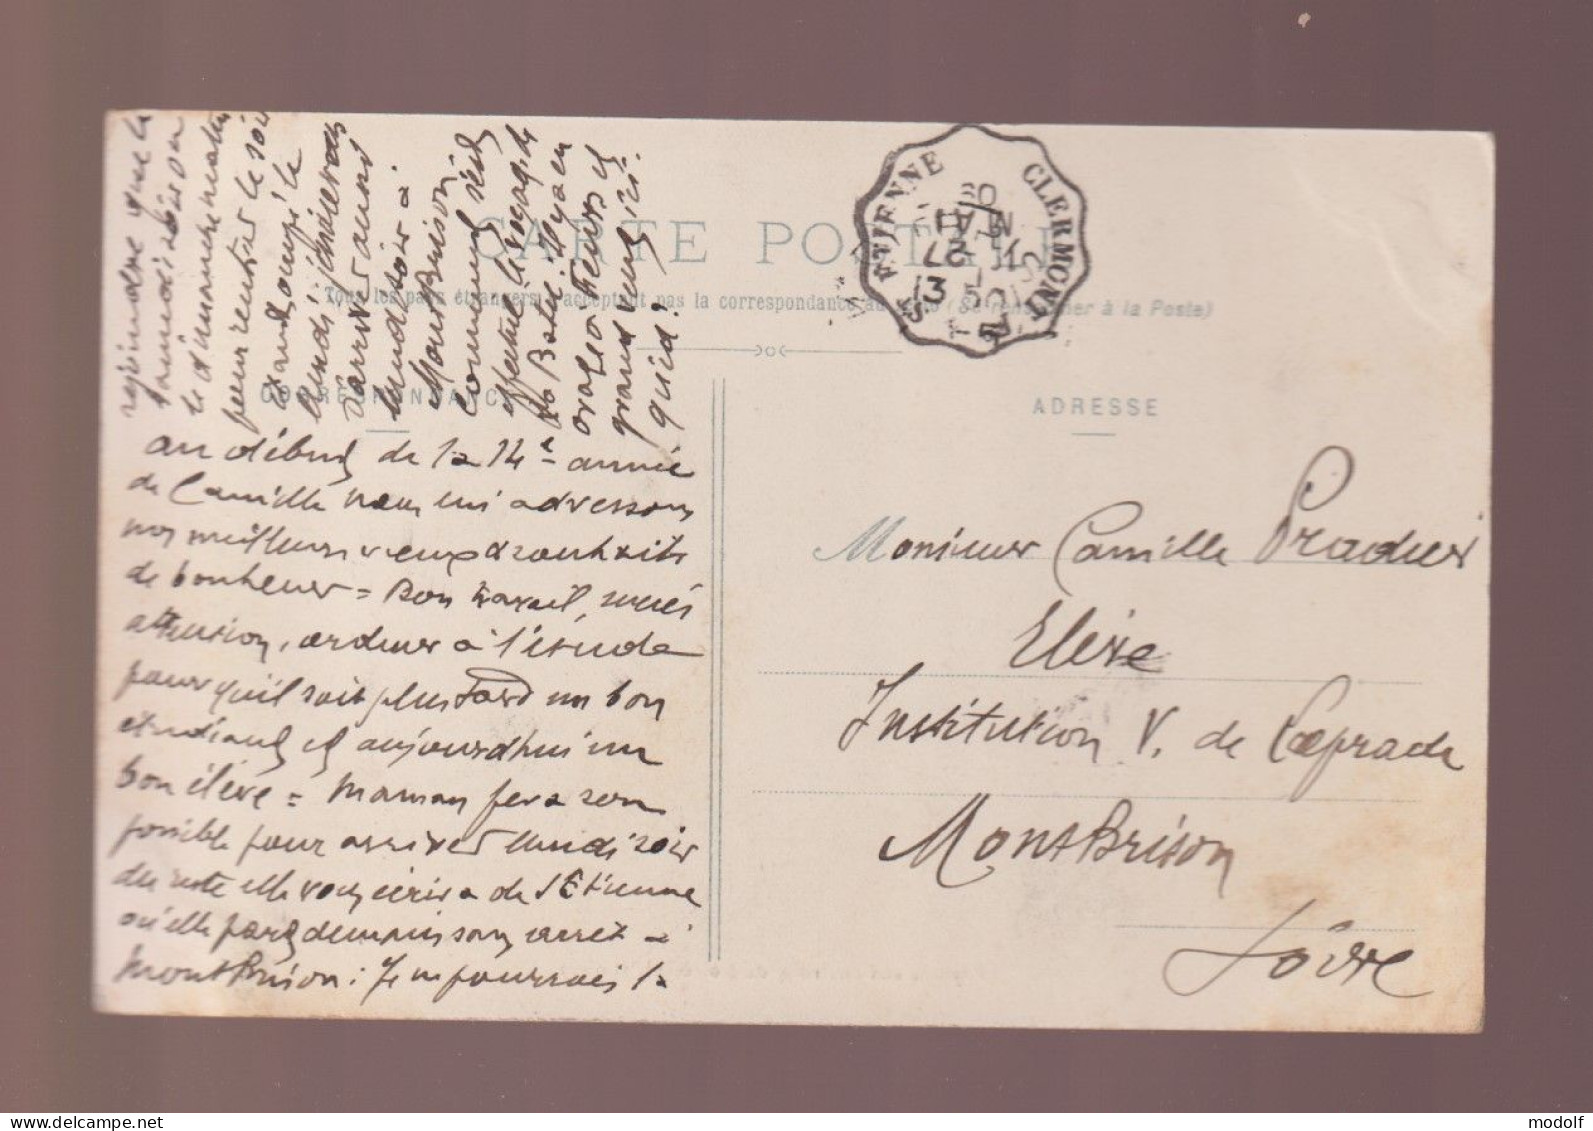 CARTE POSTALE
Tous les pays étrangers n'acceptent pas la correspondance au (Se renseigner à la Poste)
CORRESPONDANCE
ADRESSE
ST ETIENNE
CLERMONT
au début de la 14e année
de Camille nous lui adressons
nos meilleurs vœux & souhaits
de bonheur = Bon travail, succès
attention, ardeur à l'étude
pour qu'il soit plus tard un bon
étudiant et aujourd'hui un
bon élève = Maman fera son
possible pour arriver lundi soir
du reste elle vous écrira de St Etienne
qu'elle part demain sans arret à
Montbrison : Je ne pourrais la
rejoindre que le
samedi soir ou
le dimanche matin
pour rentrer le soir
lundi
d'arriver aussi
lundi soir à
Montbrison
Comment s'est
effectué le voyage de
Il y a eu
orage à Feurs et
grand vent ici.
quid ?
Monsieur Camille Pradier
Elève
Institution V. de Laprade
MontBrison
Loire
www.delcampe.net
modolf